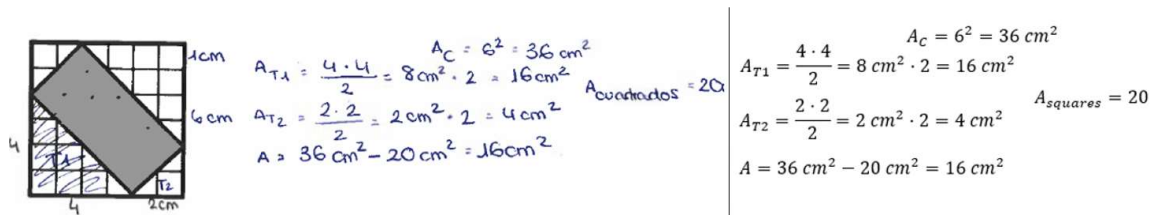 1cm
6cm
4
T1
T2
4
2cm
A_C = 6² = 36 cm²
A_{T1} = \frac{4 \cdot 4}{2} = 8cm² · 2 = 16cm²
A_{cuadrados} = 20
A_{T2} = \frac{2 \cdot 2}{2} = 2cm² · 2 = 4cm²
A = 36 cm² − 20cm² = 16cm²
A_C = 6² = 36 cm²
A_{T1} = \frac{4 \cdot 4}{2} = 8 cm² · 2 = 16 cm²
A_{squares} = 20
A_{T2} = \frac{2 \cdot 2}{2} = 2 cm² · 2 = 4 cm²
A = 36 cm² − 20 cm² = 16 cm²